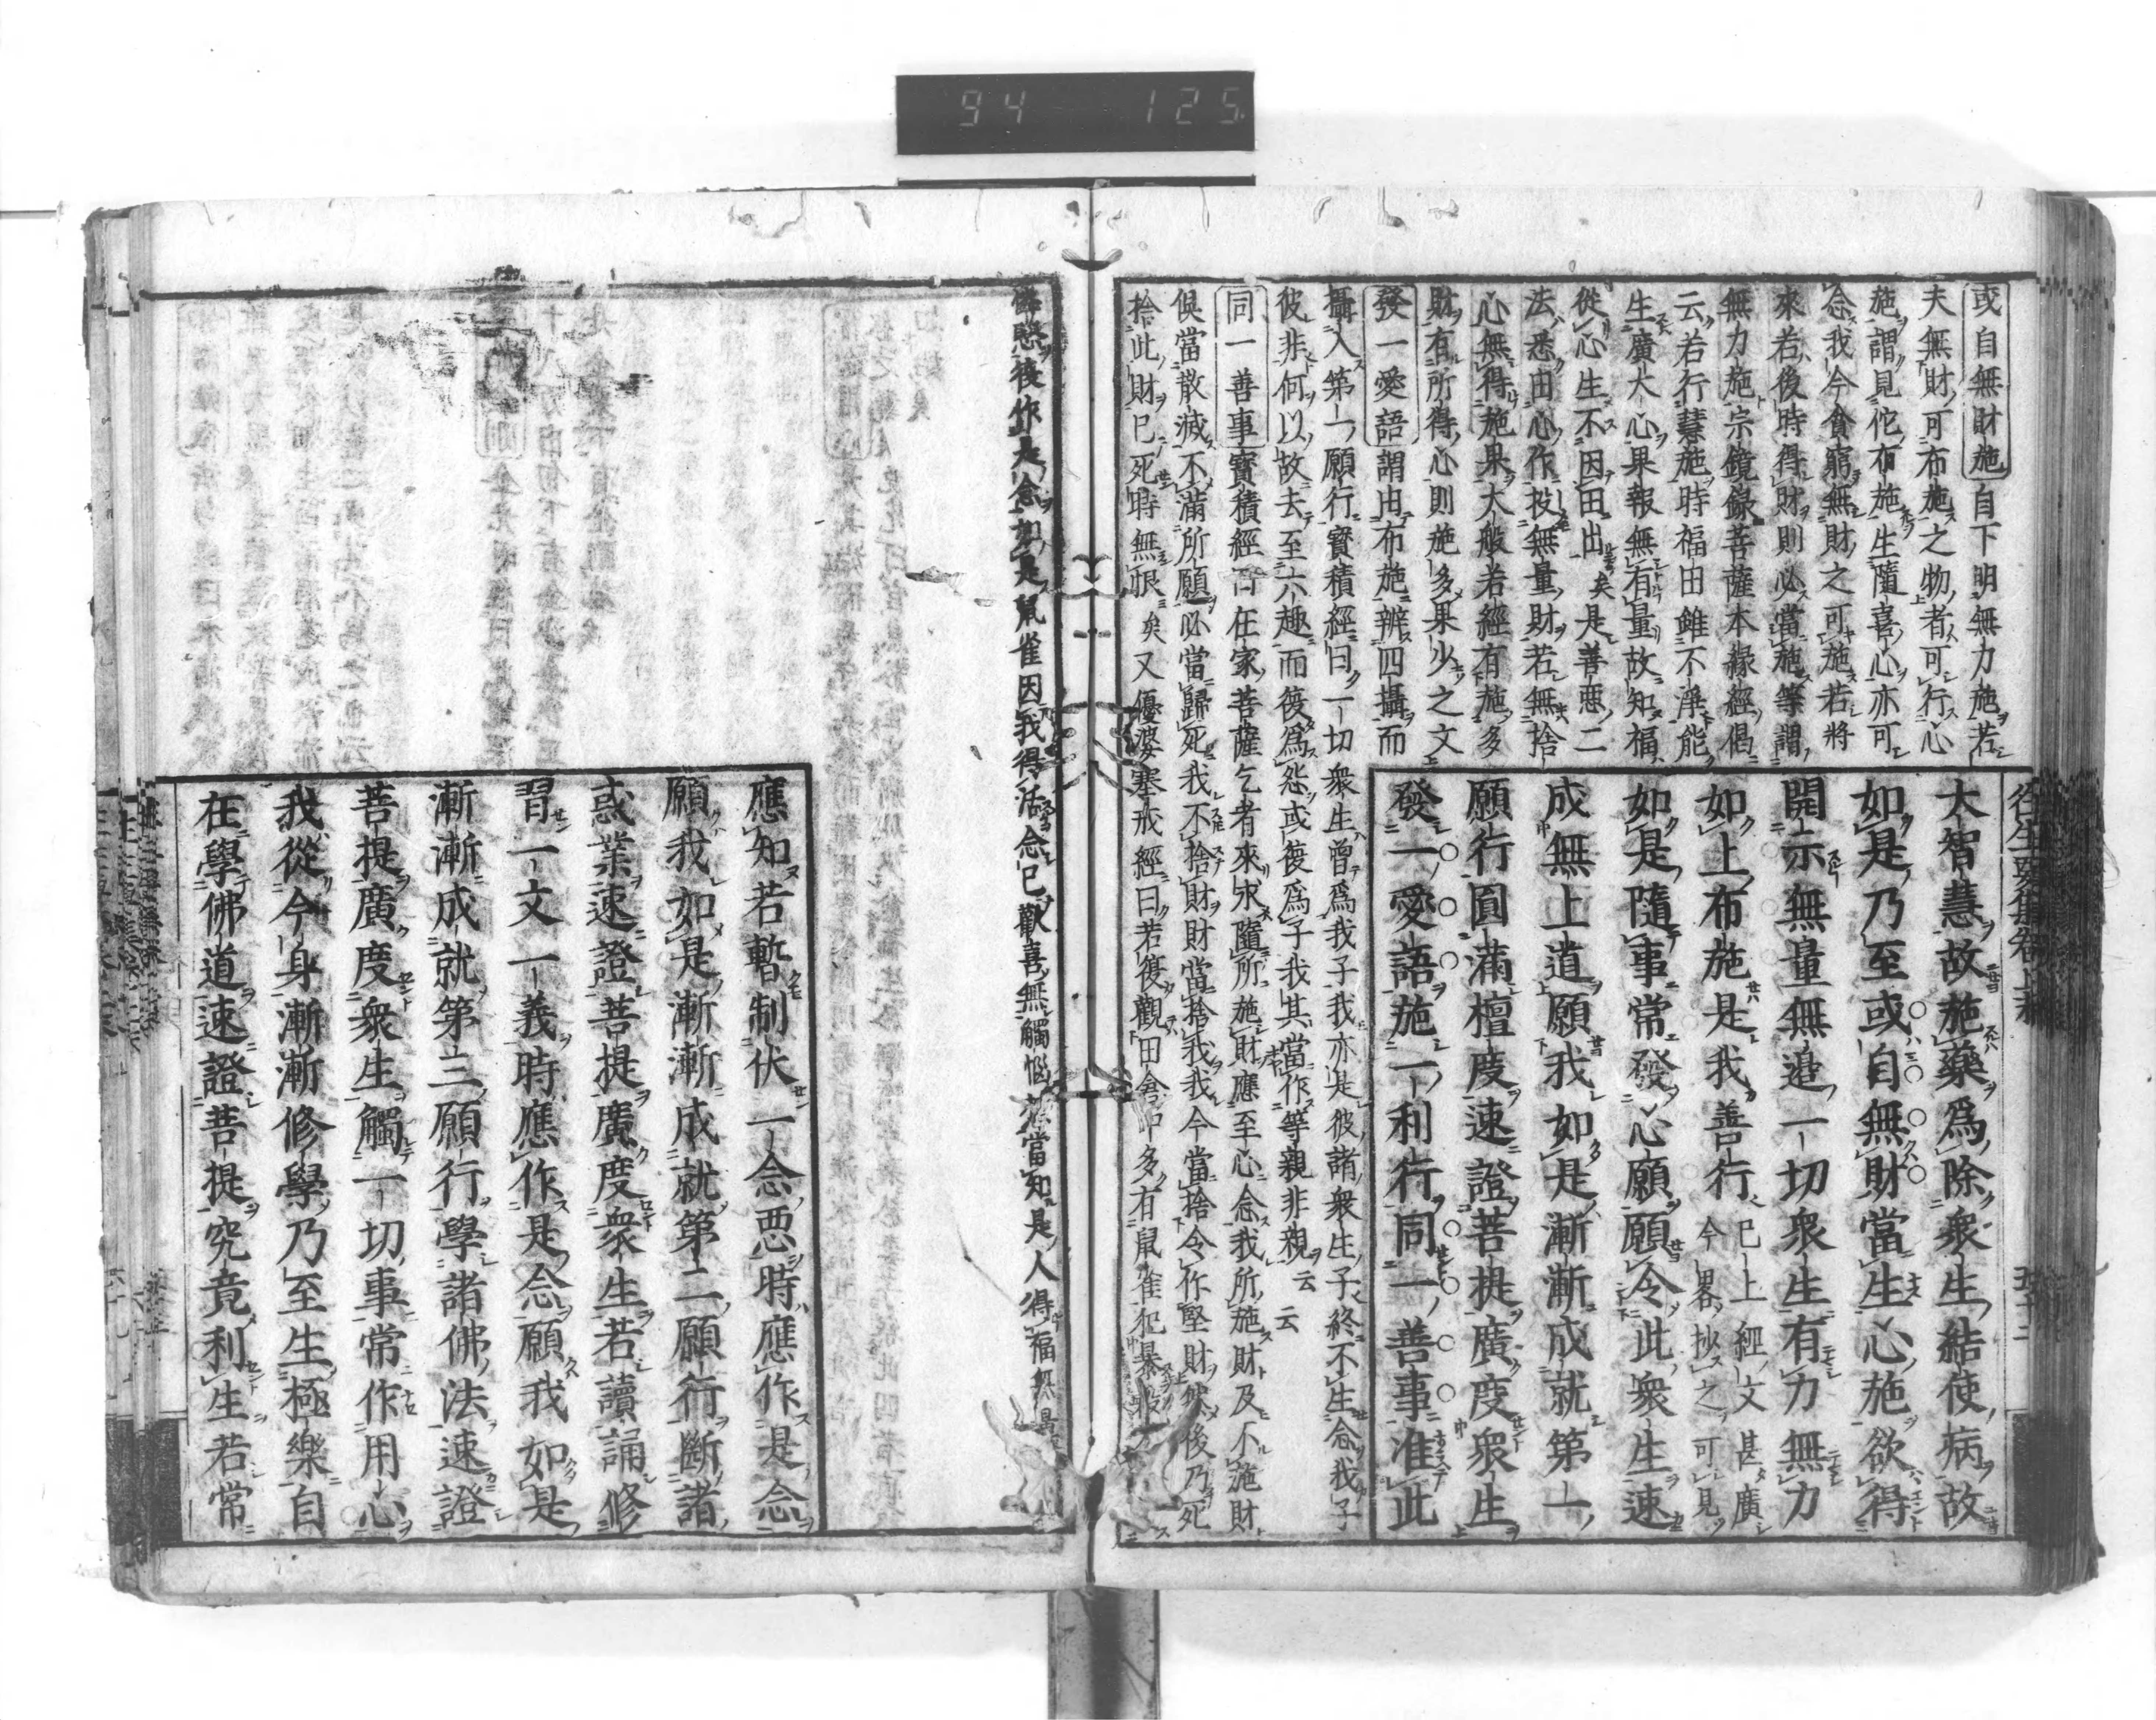 94 125
往生要集卷上末 五十二
大智慧故施藥爲除衆生結使病故
如是乃至或自無財當生心施欲得
開示無量無邊一切衆生有力無力
如上布施是我善行 已上經文甚廣今畧抄之可見
如是隨事常發心願願令此衆生速
成無上道願我如是漸漸成就第一
願行圓滿檀度速證菩提廣度衆生
發一愛語施一利行同一善事准此
或自無財施 自下明無力施若
夫無財可布施之物者可行心
施謂見佗布施生隨喜心亦可
念我今貪窮無財之可施若將
來若後時得財則必當施等謂
無力施宗鏡錄菩薩本緣經偈
云若行慧施時福田雖不淨能
生廣大心果報無有量故知福
從心生不因田出矣是善惡二
法悉由心作投無量財若無捨
心無得施果大般若經有施多
財有所得心則施多果少之文
發一愛語 謂由布施辨四攝而
攝入第一願行寳積經曰一切衆生曾爲我子我亦是彼諸衆生子終不生念我子
彼非何以故去至六趣而復爲怨或復爲子我其當作等親非親云云
同一善事 寳積經曰在家菩薩乞者來求隨所施財應至心念我所施財及不施財
俟當散滅不滿所願必當歸死我不捨財財當捨我我今當捨令作堅財然後乃死
捨此財已死時無恨矣又優婆塞戒經曰若復觀田舍中多有鼠雀犯暴
憐愍復作是念如是鼠雀因我得活念已歡喜無觸惱當知是人得福無量
應知若暫制伏一念惡時應作是念
願我如是漸漸成就第二願行斷諸
惑業速證菩提廣度衆生若讀誦修
習一文一義時應作是念願我如是
漸漸成就第三願行學諸佛法速證
菩提廣度衆生觸一切事常作用心
我從今身漸漸修學乃至生極樂自
在學佛道速證菩提究竟利生若常